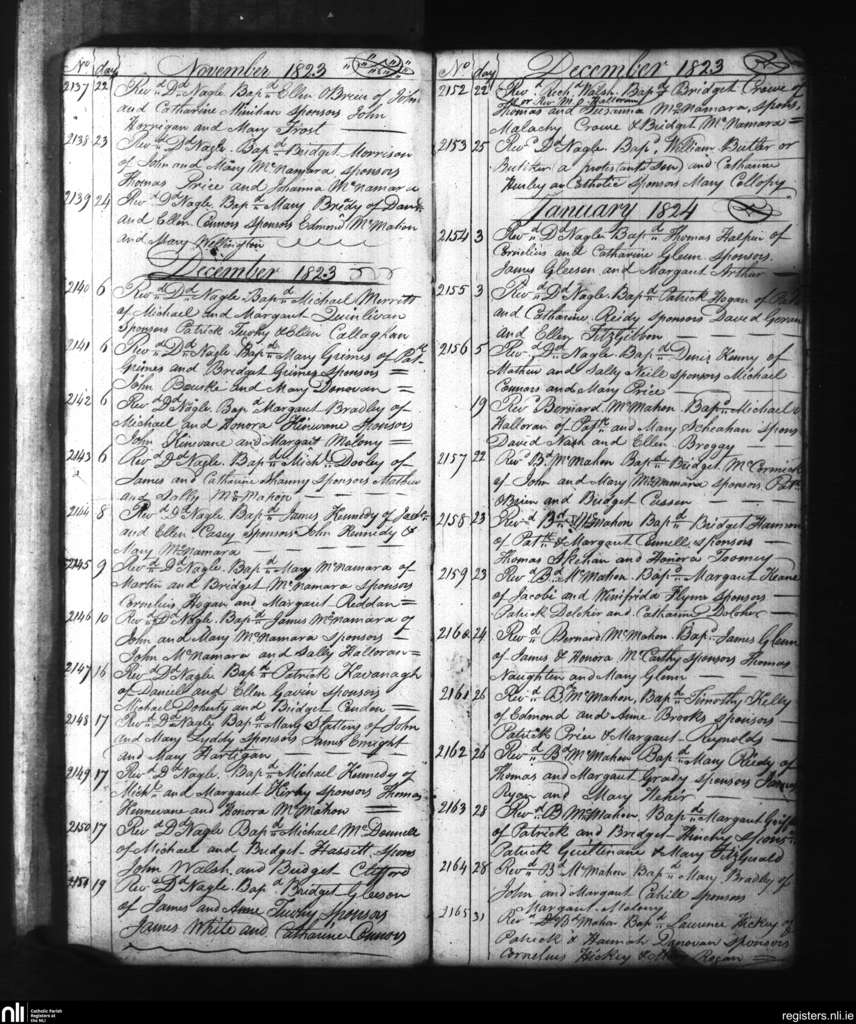 No day November 1823
2137 22 Revd Dd Nagle Bapd Ellen O'Brien of John
and Catharine Minihan sponsors John
Harrigan and Mary Frost
2138 23 Revd Dd Nagle Bapd Bridget Morrison
of John and Mary McNamara sponsors
Thomas Price and Johanna McNamara
2139 24 Revd Dd Nagle Bapd Mary Brady of
and Ellen Connors sponsors Edmond McMahon
and Mary Wellington
December 1823
2140 6 Revd Dd Nagle Bapd Michael Merritt
of Michael and Margaret Quinlivan
Sponsors Patrick Tuohy & Ellen Callaghan
2141 6 Revd Dd Nagle Bapd Mary Grimes of Patk
Grimes and Bridget Grimes Sponsors =
John Bourke and Mary Donovan =
2142 6 Revd Dd Nagle Bapd Margaret Bradley of
Michael and Honora Hinwane Sponsors
John Kinevane and Margart Molony =
2143 6 Revd Dd Nagle Bapd Michl Dooley of
James and Catharine Shanny Sponsors Mathew
and Sally McMahon
2144 8 Revd Dd Nagle Bapd James Kennedy of
and Ellen Casey sponsors John Kennedy &
Mary McNamara
2145 9 Revd Dd Nagle Bapd Mary McNamara of
Martin and Bridget McNamara sponsors
Cornelius Hogan and Margaret Reddan =
2146 10 Revd Dd Nagle Bapd James McNamara of
John and Mary McNamara sponsors
John McNamara and Sally Halloran =
2147 16 Revd Dd Nagle Bapd Patrick Kavanagh
of Daniel and Ellen Gavin sponsors
Michael Doherty and Bridget Condon =
2148 17 Revd Dd Nagle Bapd Mary Slattery of John
and Mary Lyddy sponsors James Enright
and Mary Hartigan
2149 17 Revd Dd Nagle Bapd Michael Kennedy of
Michl and Margaret Kirby sponsors Thomas
Hinnevane and Honora McMahon =
2150 17 Revd Dd Nagle Bapd Michael McDonnell
of Michael and Bridget Hassett spons
John Walsh and Bridget Clifford
2151 19 Revd Dd Nagle Bapd Bridget Gleeson
of James and Anne Tuohy Sponsors
James White and Catharine Connors
No day December 1823
2152 22 Revd Rich Walsh Bapd Bridget Crowe of
or Revd M P Halloran
Thomas and Susanna McNamara, spons
Malachy Crowe & Bridget McNamara =
2153 25 Revd Dd Nagle Bapd William Butler or
a protestants son and Catharine
Hurley a Catholic sponsors Mary Collopy
January 1824
2154 3 Revd Dd Nagle Bapd Thomas Halpin of
Cornelius and Catharine Glenn sponsors
James Gleeson and Margaret Arthur
2155 3 Revd Dd Nagle Bapd Patrick Hogan of
and Catharine Reidy sponsors David
and Ellen FitzGibbon
2156 5 Revd Dd Nagle Bapd Denis Kenny of
Mathew and Sally Neile sponsors Michael
Connors and Mary Price
19 Revd Bernard McMahon Bapd Michael
Halloran of Patk and Mary Scheahan spons
David Nash and Ellen Broggy
2157 22 Revd Bd McMahon Bapd Bridget McCormick
of John and Mary McNamara sponsors Patk
OBrien and Bridget Cussen
2158 23 Revd Bd McMahon Bapd Bridget Hannon
of Patk & Margaret Connell sponsors
Thomas Skehan and Honora Toomey
2159 23 Revd Bd McMahon Bapd Margaret Keane
of Jacobi and Winifrida Flynn Sponsors
Patrick Dolcher and Catharine Dolcher
2160 24 Revd Bernard McMahon Bapd James Glenn
of James & Honora McCarthy Sponsors Thomas
Naughten and Mary Glenn
2161 26 Revd Bd McMahon, Bapd Timothy Kelly
of Edmond and Anne Brooks sponsors
Patrick Price & Margaret Reynolds
2162 26 Revd Bd McMahon Bapd Mary Reedy of
Thomas and Margaret Grady sponsors James
Ryan and Mary Neher
2163 28 Revd B McMahon, Bapd Margaret
of Patrick and Bridget Hinchy spons
Patrick & Mary FitzGerald
2164 28 Revd Bd McMahon Bapd Mary Bradley of
John and Margaret Cahill sponsors
Margaret Molony
2165 31 Revd Bd McMahon Bapd Laurence Hickey of
Patrick & Hannah Donovan sponsors
Cornelius Hickey & Mary Hogan
nli Catholic Parish
Registers at
the NLI
registers.nli.ie